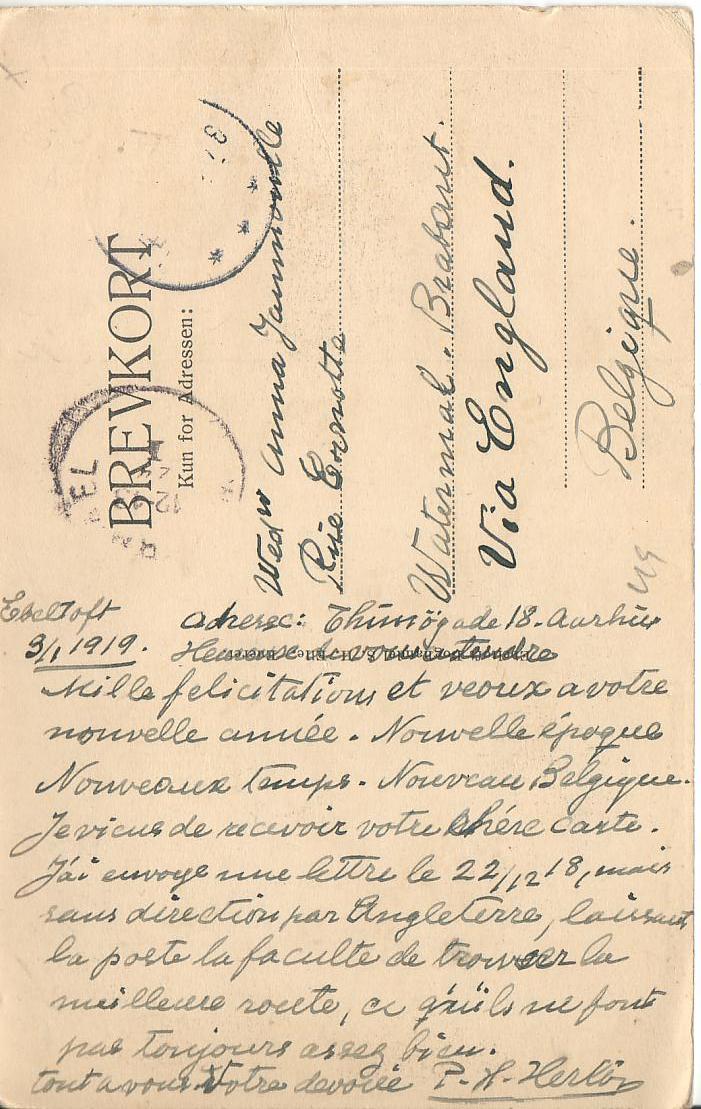 BREVKORT
Kun for Adressen:
Wedw Anna Jammoulle
Rüe Ernotte
Watermal. Brabant.
Via England.
Belgique.
Ebeltoft
3/1 1919.
adresse: Thunögade 18. Aarhus
Heureux de vous entendre
Mille felicitations et veoux a votre
nouvelle année. Nouvelle époque
Nouveaux temps. Nouveau Belgique.
Je viens de recevoir votre chére carte.
J'ai envoye une lettre le 22/12 18, mais
sans direction par Angleterre, laissant
la poste la faculte de trouver la
meilleure route, ce qu'ils ne font
pas toujours assez bien.
tout a vous. Votre devouée P.-H-Hertön